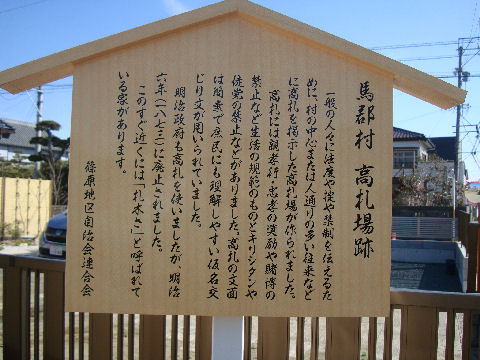 馬郡村 高札場跡
一般の人々に法度や掟や禁制を伝えるた
めに、村の中心または人通りの多い往来など
に高札を掲示した高札場が作られました。
高札には親孝行・忠孝の奨励や賭博の
禁止など生活の規範のものとキリシタンや
徒党の禁止などがありました。高札の文面
は簡素で庶民にも理解しやすい仮名交
じり文が用いられていました。
明治政府も高札を使いましたが、明治
六年(一八七三)に廃止されました。
このすぐ近くには「札木さ」と呼ばれて
いる家があります。
篠原地区自治会連合会